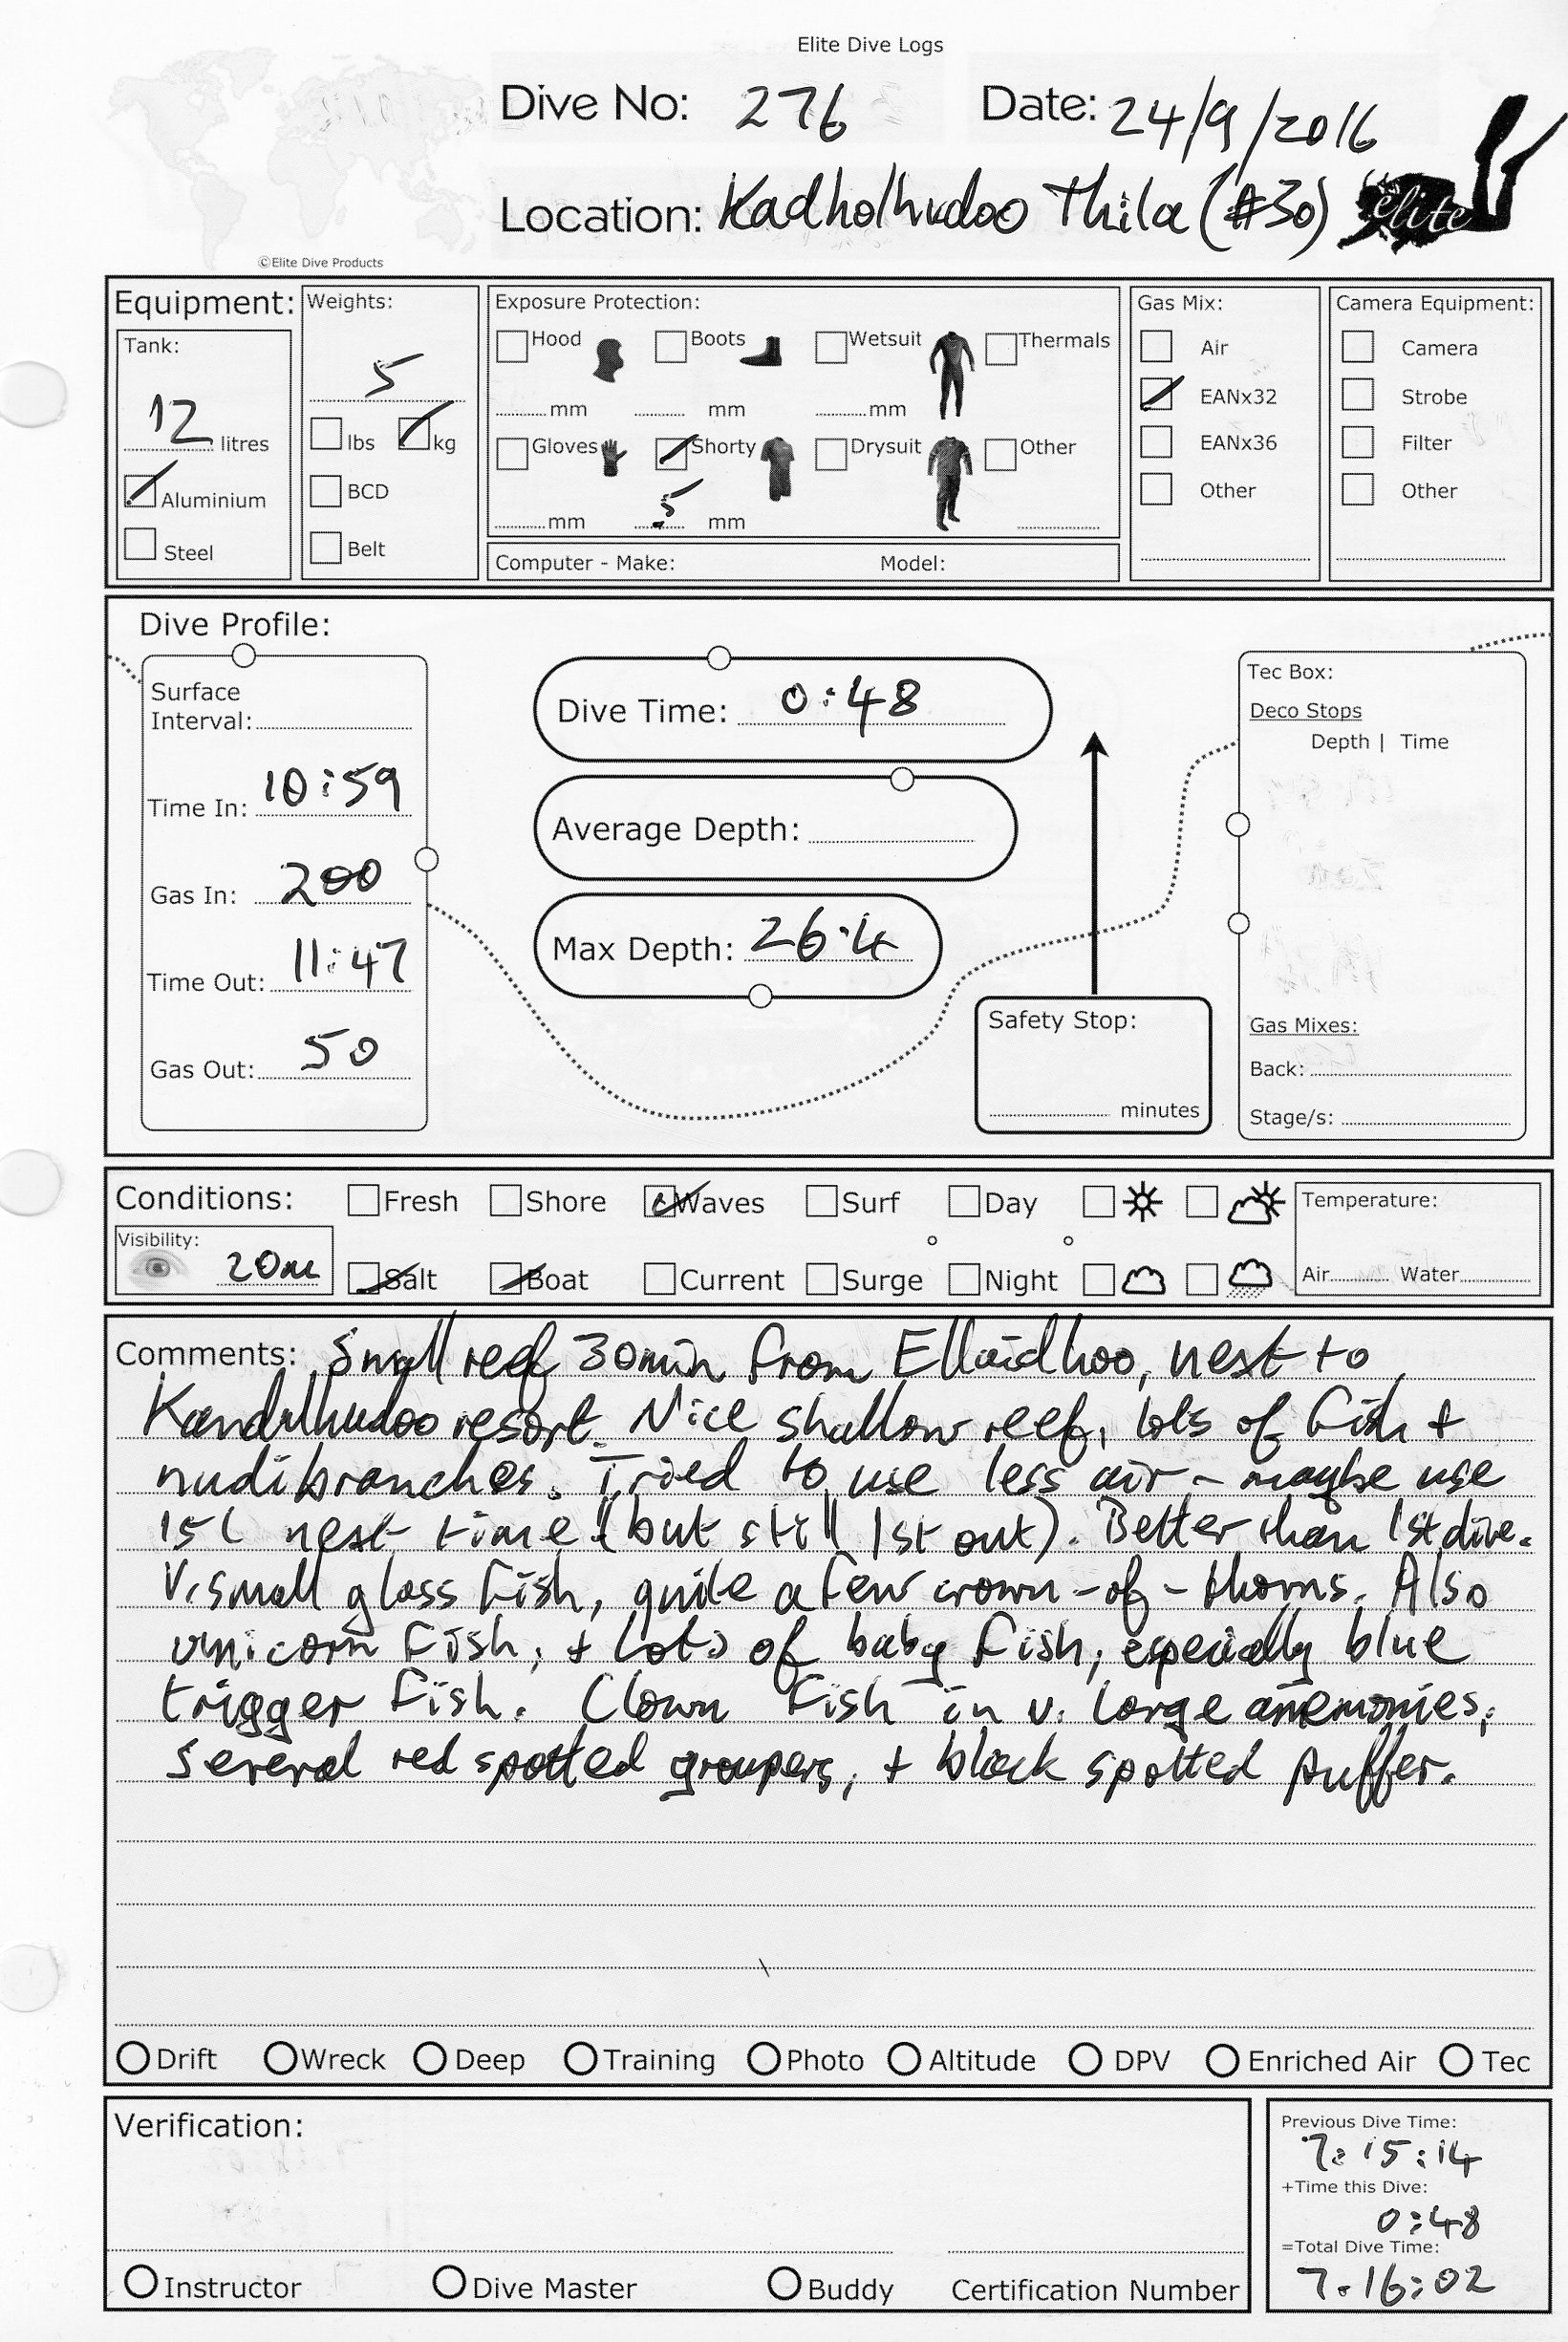 Elite Dive Logs
Dive No: 276 Date: 24/9/2016
Location: Kadholhudoo Thila (#30)
elite
©Elite Dive Products
Equipment: Weights: Exposure Protection: Gas Mix: Camera Equipment:
Tank: Hood Boots Wetsuit Thermals Air Camera
5 EANx32 Strobe
12 litres mm mm mm
lbs kg Gloves Shorty Drysuit Other EANx36 Filter
Aluminium BCD Other Other
mm 5 mm
Steel Belt Computer - Make: Model:
Dive Profile:
Surface
Interval:
Time In: 10:59
Gas In: 200
Time Out: 11:47
Gas Out: 50
Dive Time: 0:48
Average Depth:
Max Depth: 26.4
Safety Stop:
minutes
Tec Box:
Deco Stops
Depth | Time
Gas Mixes:
Back:
Stage/s:
Conditions: Fresh Shore Waves Surf Day Temperature:
Visibility: 20m Salt Boat Current Surge Night Air Water
Comments: Small reef 30min from Ellaidhoo, next to
Kandulhudoo resort. Nice shallow reef, lots of fish +
nudibranches. Tried to use less air - maybe use
15l next time (but still 1st out). Better than 1st dive.
V. small glass fish, quite a few crown-of-thorns. Also
unicorn fish, + lots of baby fish, especially blue
trigger fish. Clown fish in v. large anemonies,
several red spotted groupers, + black spotted puffer.
Drift Wreck Deep Training Photo Altitude DPV Enriched Air Tec
Verification:
Instructor Dive Master Buddy Certification Number
Previous Dive Time:
7:15:14
+Time this Dive:
0:48
=Total Dive Time:
7.16:02